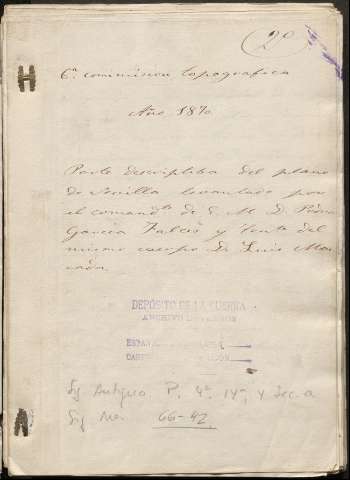 (2º
6ª commision topografica
Año 1870
Parte descriptiba del plano
de Sevilla levantado por
el comandte de E. M. D. Pedro
Garcia Falces y Tente del
mismo cuerpo D. Luis
DEPÓSITO DE LA GUERRA
ARCHIVO DE PLANOS
ESPAÑA
Sig. Antigua P. 4ª, 14ª, y Sec. a
Sig. Nª. 66-42